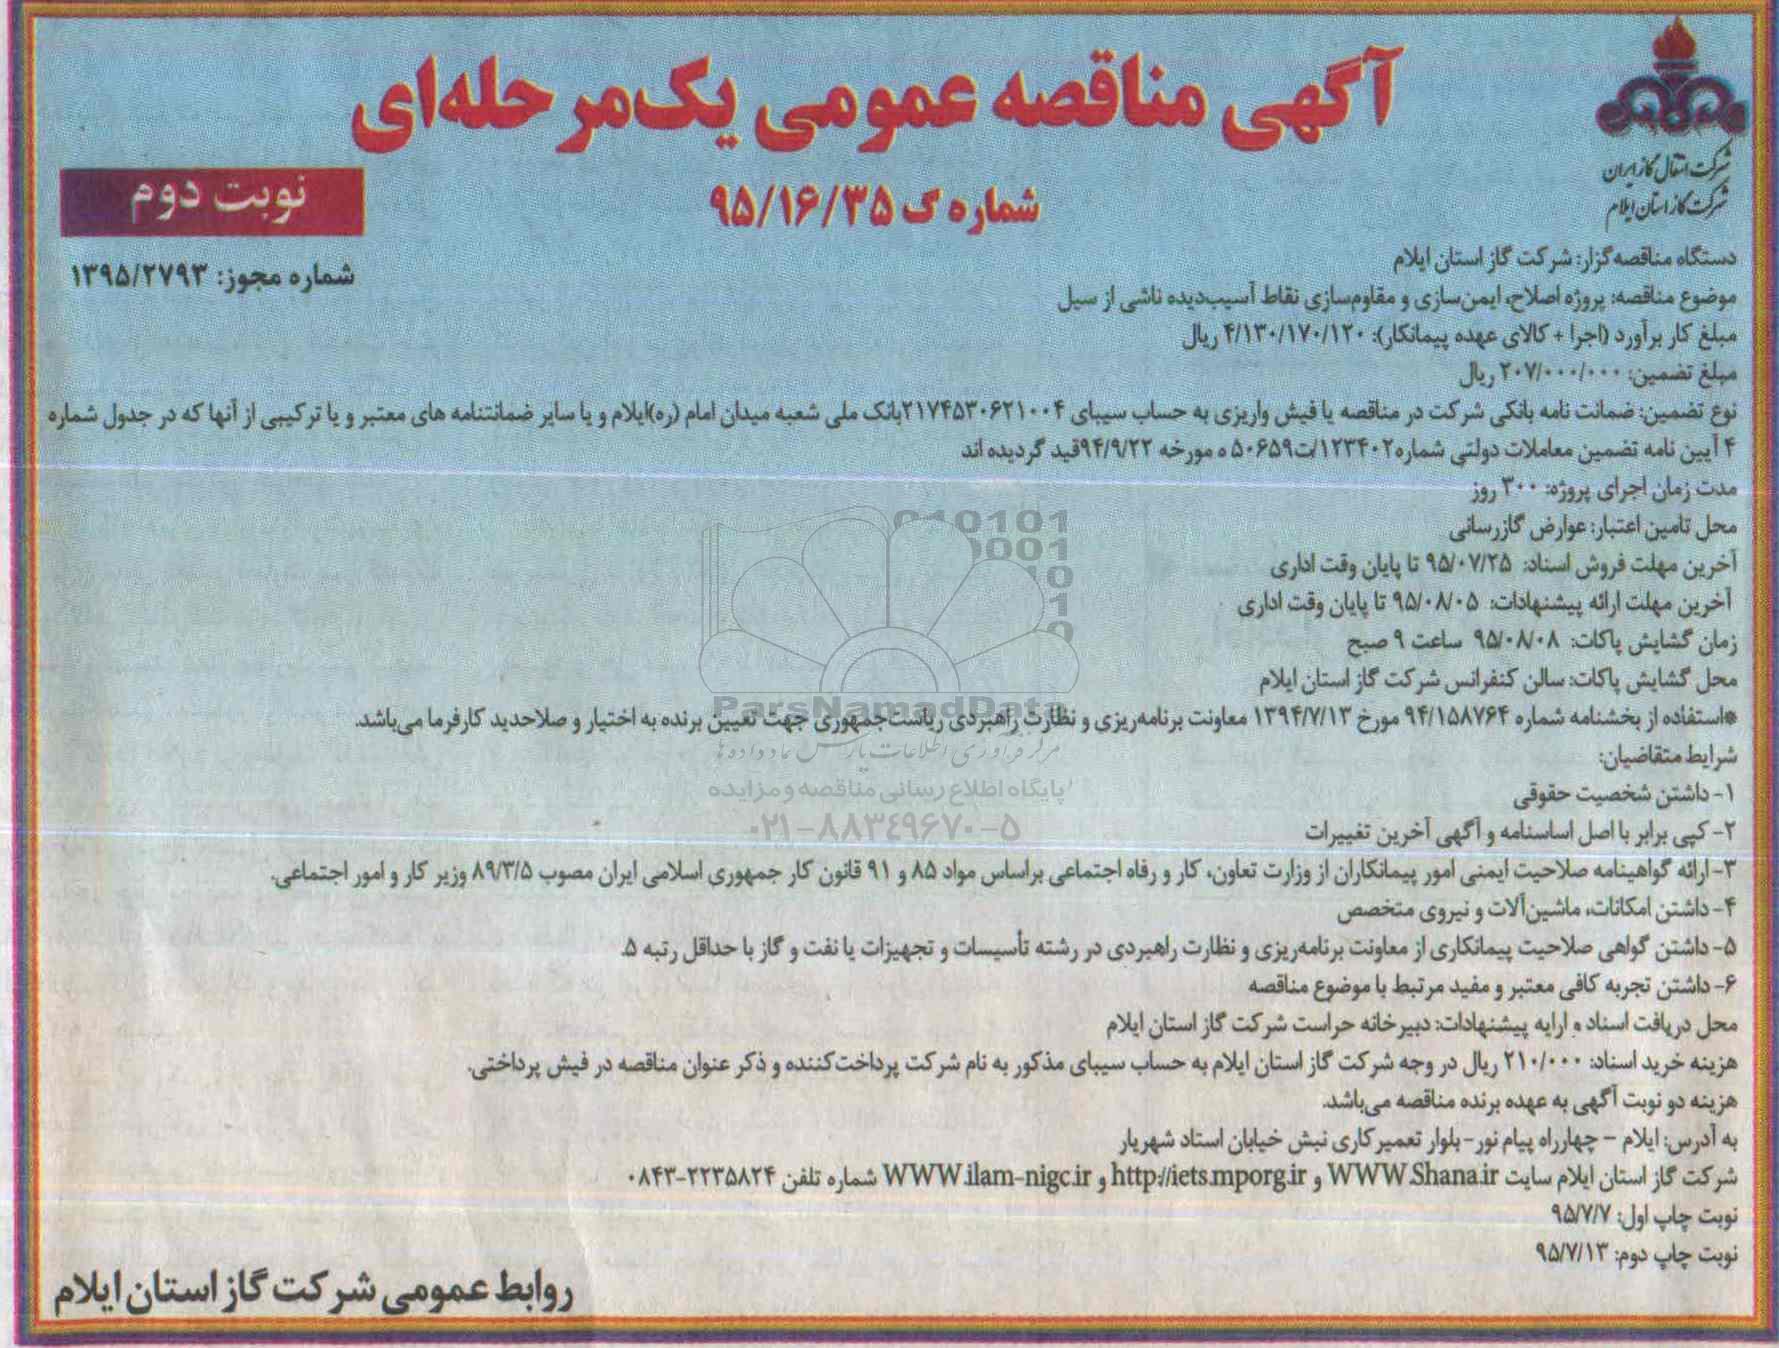 آگهی مناقصه عمومی یک‌مرحله‌ای
شماره گ ۹۵/۱۶/۳۵
شرکت انتقال گاز ایران
شرکت گاز استان ایلام
نوبت دوم
شماره مجوز: ۱۳۹۵/۲۷۹۳
دستگاه مناقصه‌گزار: شرکت گاز استان ایلام
موضوع مناقصه: پروژه اصلاح، ایمن‌سازی و مقاوم‌سازی نقاط آسیب‌دیده ناشی از سیل
مبلغ کار برآورد (اجرا + کالای عهده پیمانکار): ۴/۱۳۰/۱۷۰/۱۲۰ ریال
مبلغ تضمین: ۲۰۷/۰۰۰/۰۰۰ ریال
نوع تضمین: ضمانت نامه بانکی شرکت در مناقصه یا فیش واریزی به حساب سیبای ۲۱۷۴۵۳۰۶۲۱۰۰۴بانک ملی شعبه میدان امام (ره)ایلام و یا سایر ضمانتنامه های معتبر و یا ترکیبی از آنها که در جدول شماره
۴ آیین نامه تضمین معاملات دولتی شماره۱۲۳۴۰۲/ت۵۰۶۵۹ ه مورخه ۹۴/۹/۲۲قید گردیده اند
مدت زمان اجرای پروژه: ۳۰۰ روز
محل تامین اعتبار: عوارض گازرسانی
آخرین مهلت فروش اسناد: ۹۵/۰۷/۲۵ تا پایان وقت اداری
آخرین مهلت ارائه پیشنهادات: ۹۵/۰۸/۰۵ تا پایان وقت اداری
زمان گشایش پاکات: ۹۵/۰۸/۰۸ ساعت ۹ صبح
محل گشایش پاکات: سالن کنفرانس شرکت گاز استان ایلام
ParsNamadData
*استفاده از بخشنامه شماره ۹۴/۱۵۸۷۶۴ مورخ ۱۳۹۴/۷/۱۳ معاونت برنامه‌ریزی و نظارت راهبردی ریاست‌جمهوری جهت تعیین برنده به اختیار و صلاحدید کارفرما می‌باشد.
مرکز فرآوری اطلاعات پارس نماد داده ها
شرایط متقاضیان:
پایگاه اطلاع رسانی مناقصه و مزایده
۱- داشتن شخصیت حقوقی
۰۲۱-۸۸۳۴۹۶۷۰-۵
۲- کپی برابر با اصل اساسنامه و آگهی آخرین تغییرات
۳- ارائه گواهینامه صلاحیت ایمنی امور پیمانکاران از وزارت تعاون، کار و رفاه اجتماعی براساس مواد ۸۵ و ۹۱ قانون کار جمهوری اسلامی ایران مصوب ۸۹/۳/۵ وزیر کار و امور اجتماعی.
۴- داشتن امکانات، ماشین‌آلات و نیروی متخصص
۵- داشتن گواهی صلاحیت پیمانکاری از معاونت برنامه‌ریزی و نظارت راهبردی در رشته تأسیسات و تجهیزات یا نفت و گاز با حداقل رتبه ۵.
۶- داشتن تجربه کافی معتبر و مفید مرتبط با موضوع مناقصه
محل دریافت اسناد و ارایه پیشنهادات: دبیرخانه حراست شرکت گاز استان ایلام
هزینه خرید اسناد: ۲۱۰/۰۰۰ ریال در وجه شرکت گاز استان ایلام به حساب سیبای مذکور به نام شرکت پرداخت‌کننده و ذکر عنوان مناقصه در فیش پرداختی.
هزینه دو نوبت آگهی به عهده برنده مناقصه می‌باشد.
به آدرس: ایلام – چهارراه پیام نور- بلوار تعمیرکاری نبش خیابان استاد شهریار
شرکت گاز استان ایلام سایت WWW.Shana.ir و http://iets.mporg.ir و WWW.ilam-nigc.ir شماره تلفن ۲۲۳۵۸۲۴-۰۸۴۳
نوبت چاپ اول: ۹۵/۷/۷
نوبت چاپ دوم: ۹۵/۷/۱۳
روابط عمومی شرکت گاز استان ایلام